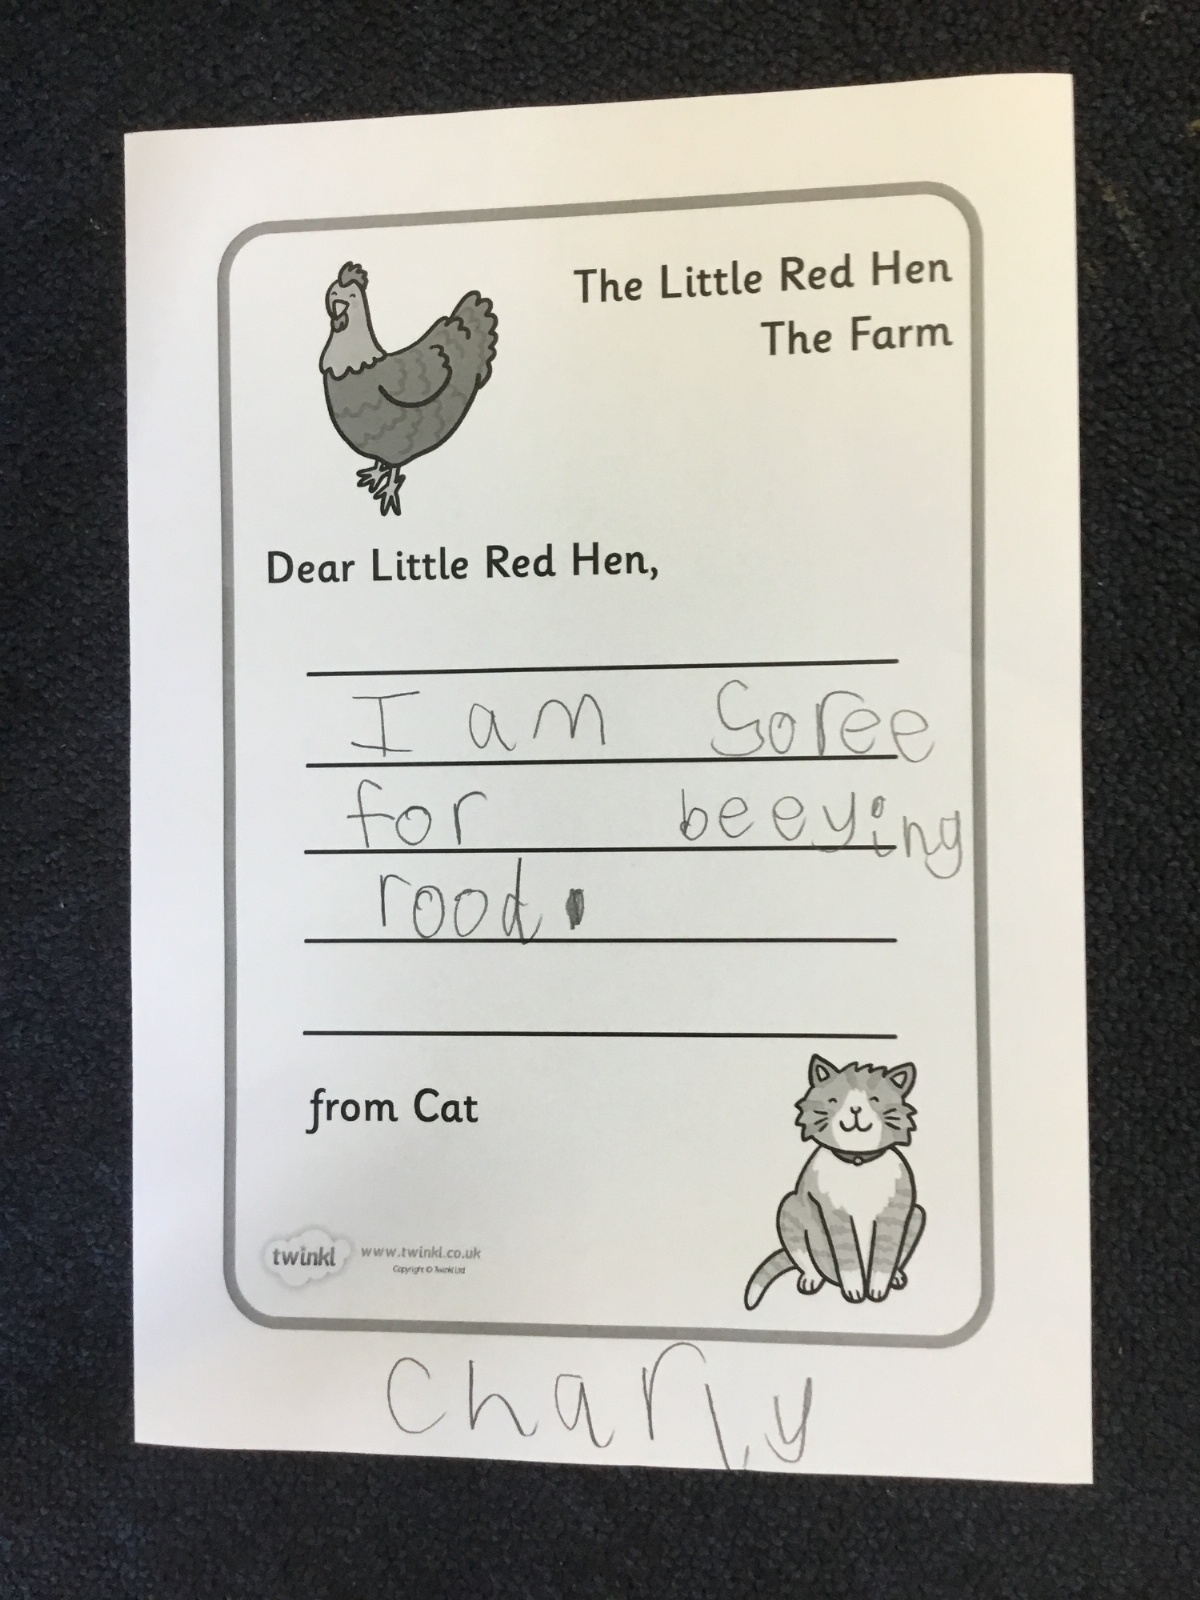 The Little Red Hen
The Farm
Dear Little Red Hen,
I am Soree
for beeying
rood.
from Cat
twinkl www.twinkl.co.uk
Copyright © Twinkl Ltd
Charly